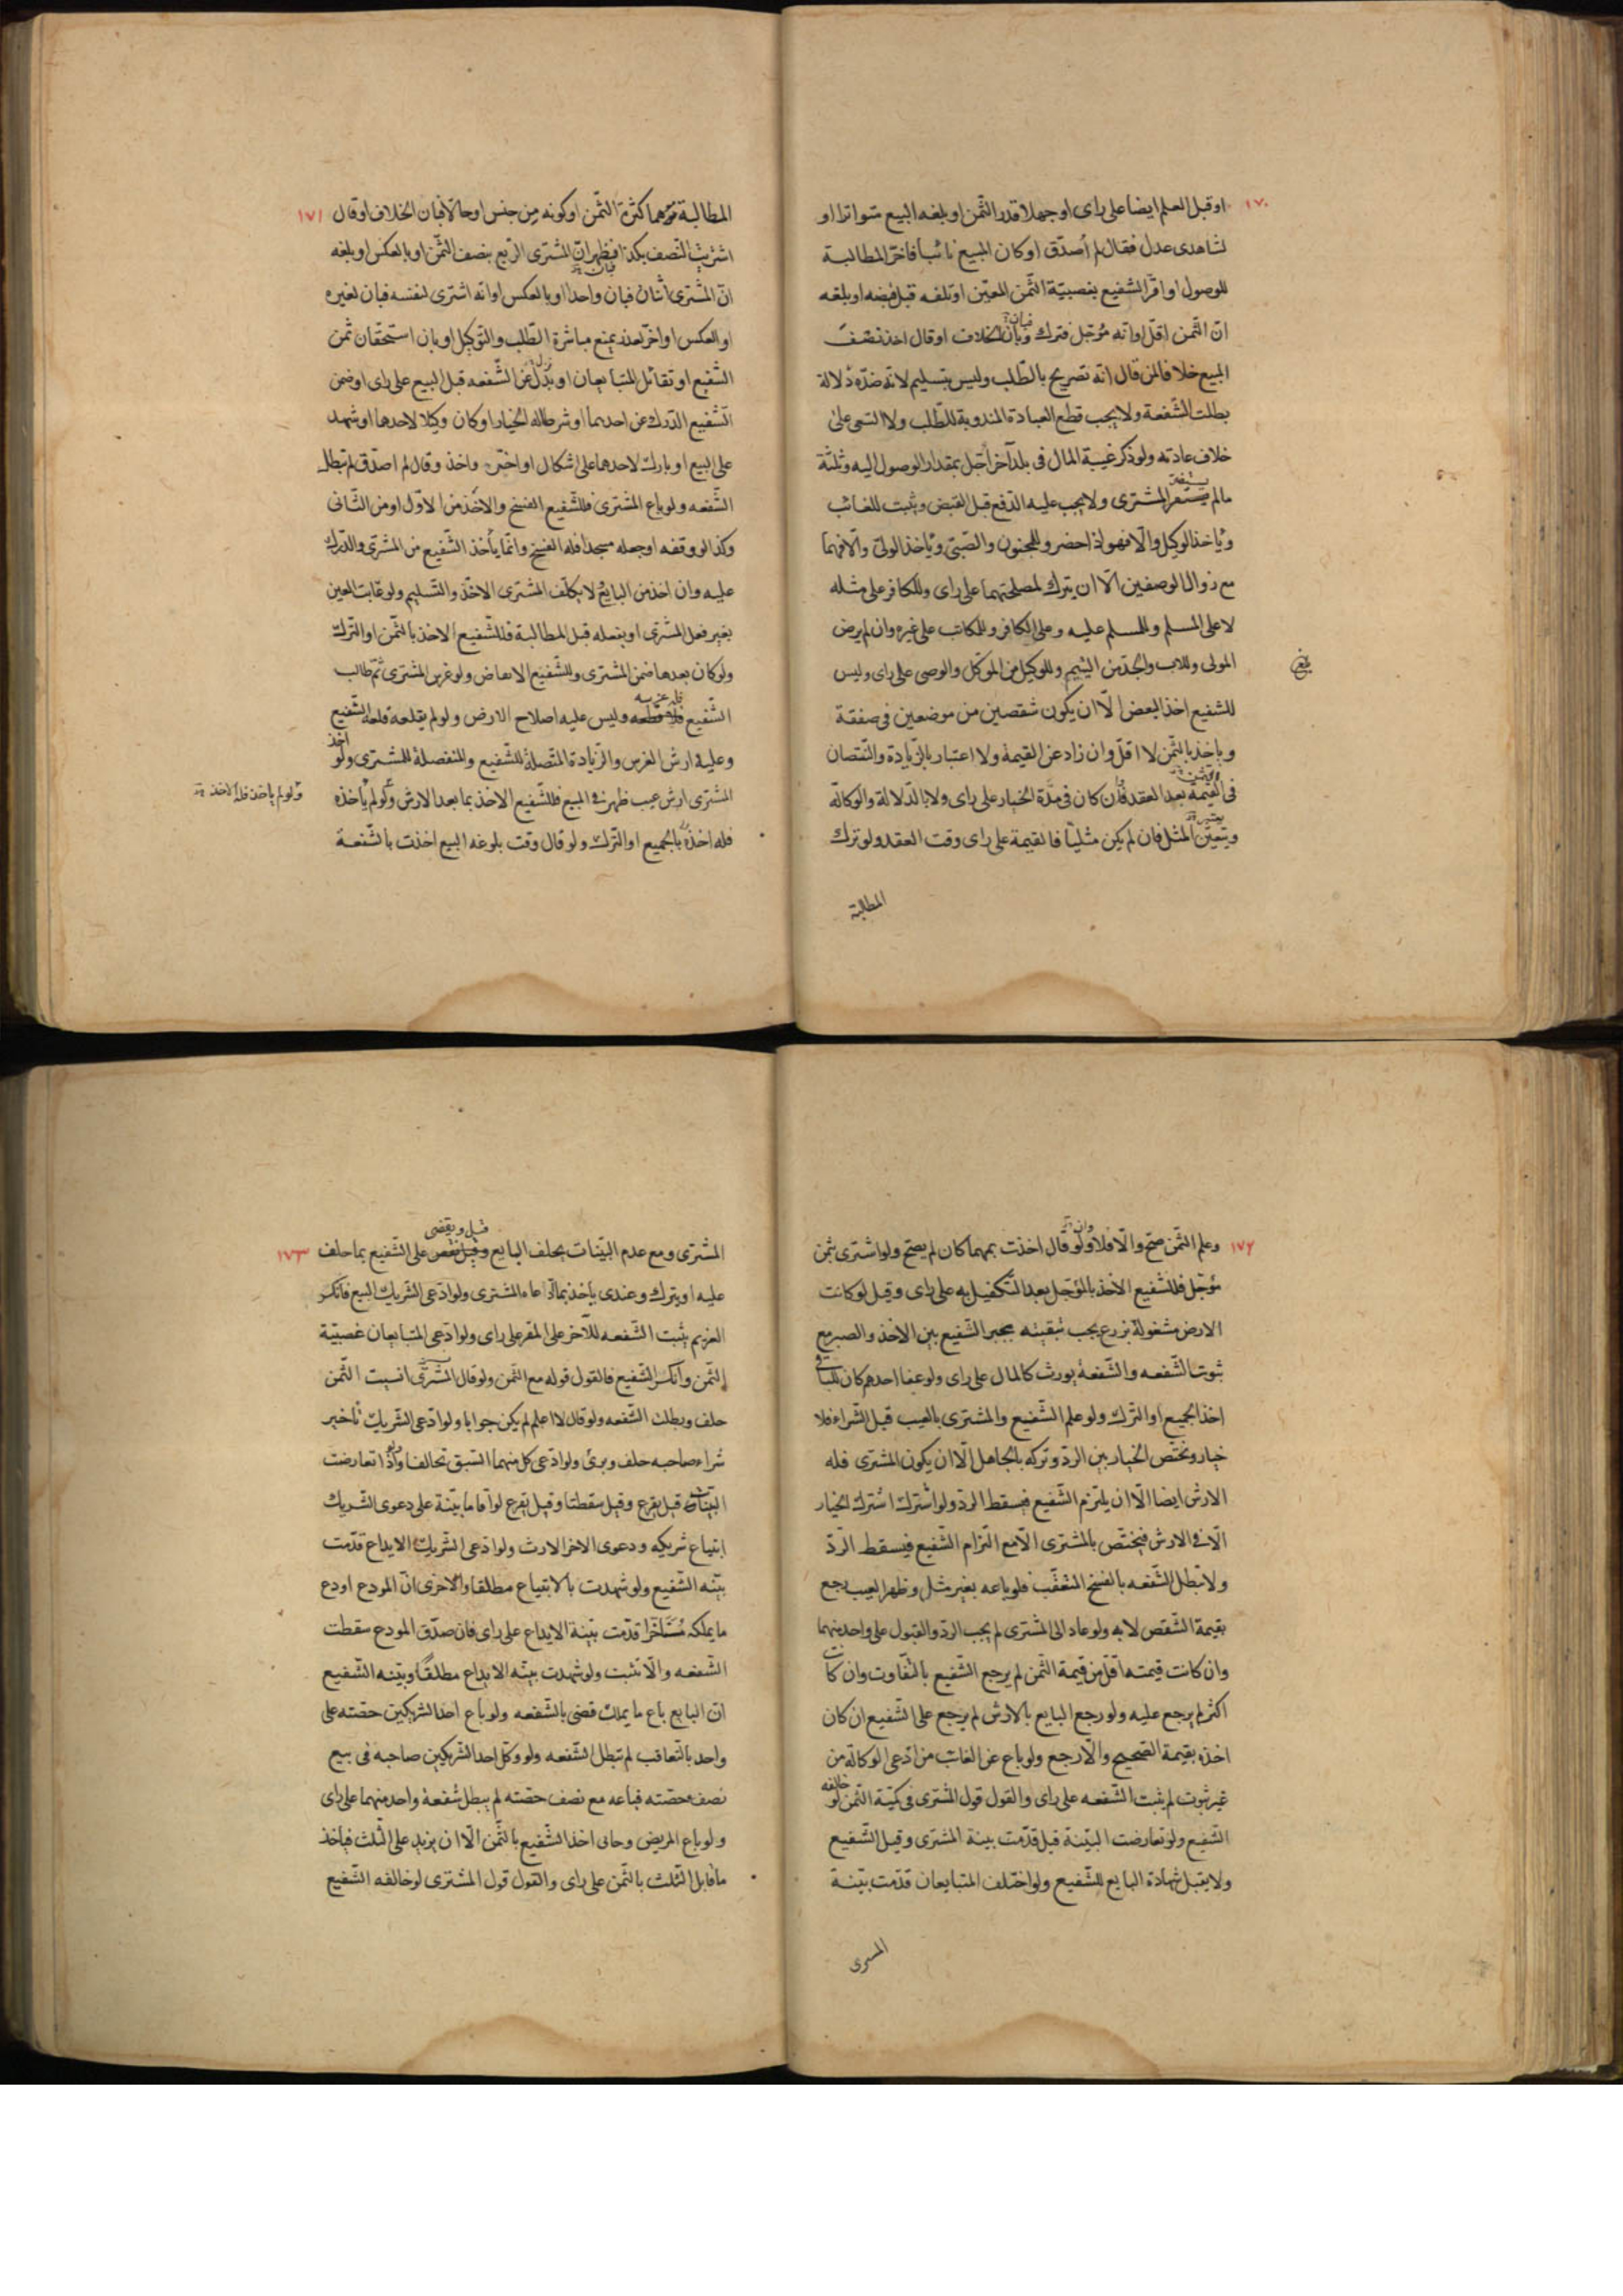 ١٧٠
او قبل العلم ايضا على راى او جهلا قدر الثمن او بلغه البيع متواترا او
لشاهدى عدل فقال لم أصدّق او كان المبيع نائبا فاخّر المطالبة
للوصول او اقرّ الشفيع بغصبيّة الثّمن المعيّن او تلفه قبل قبضه او بلغه
انّ الثّمن اقلّ او انّه مؤجّل فترك وبان الخلاف او قال اخذ نصف
فبان
المبيع خلافا لمن قال انّه تصريح بالطّلب وليس بتسليم لانّه ضدّه دلالة
بطلت الشّفعة ولا يجب قطع العبادة المندوبة للطّلب ولا السّعى على
خلاف عادته ولو ذكر غيبة المال فى بلد آخر اجّل بمقدار الوصول اليه وثلثة
ما لم يستضر المشترى ولا يجب عليه الدّفع قبل القبض وتثبت للغائب
وياخذ الوكيل والّا فهو اذا حضر وللمجنون والصّبىّ وياخذ الولىّ والّا فهما
مع زوال الوصفين الّا ان يترك لمصلحتهما على راى وللكافر على مثله
لا على المسلم وللمسلم عليه وعلى الكافر وللمكاتب على غيره وان لم يرض
المولى وللاب والجدّ من اليتيم وللوكيل من الموكّل والوصى على راى وليس
للشفيع اخذ البعض الّا ان يكون شقصين من موضعين فى صفقة
وياخذ بالثّمن لا اقلّ وان زاد عن القيمة ولا اعتبار بالزّيادة والنّقصان
فى القيمة بعد العقد وان كان فى مدّة الخيار على راى ولا بالدّلالة والوكالة
ويتعيّن المثل فان لم يكن مثليّا فالقيمة على راى وقت العقد ولو ترك
المطالبة
١٧١
المطالبة توهما كثرة الثّمن او كونه من جنس او حالّا فبان الخلاف او قال
اشتريت النّصف بكذا فظهر انّ المشترى الرّبع بنصف الثّمن او بالعكس او بلغه
انّ المشترى اثنان فبان واحدا او بالعكس او انّه اشترى لنفسه فبان لغيره
او العكس او اخّر لعذر يمنع مباشرة الطّلب والتّوكيل او بان استحقان ثمن
الشّفيع او تقائل المتبايعان او نزل عن الشّفعه قبل البيع على راى او ضمن
الشّفيع الدّرك عن احدهما او شرطا له الخيار او كان وكيلا لاحدهما او شهد
على البيع او بارك لاحدهما على اشكال او اخّر واخذ وقال لم اصدّق لم تبطل
الشّفعه ولو باع المشترى فللشّفيع الفسخ والاخذ من الاوّل او من الثّانى
وكذا لو وقفه او جعله مسجدا فله الفسخ وانّما يأخذ الشّفيع من المشترى والدّرك
عليه وان اخذ من البايع لا يكلّف المشترى الاخذ والتّسليم ولو عابت العين
بغير فعل المشترى او بفعله قبل المطالبة فللشّفيع الاخذ بالثّمن او التّرك
ولو كان بعدها ضمن المشترى وللشّفيع الانقاض ولو غرس المشترى ثمّ طالب
الشّفيع فله قطعه وليس عليه اصلاح الارض ولو لم يقلعه قلعه الشّفيع
وعليه ارش الغرس والزّيادة المتّصلة للشّفيع والمنفصلة للمشترى ولو اخذ
المشترى ارش عيب ظهر فى المبيع فللشّفيع الاخذ بما بعد الارش ولو لم يأخذه
ولو لم ياخذ فله الاخذ
فله اخذه بالجميع او التّرك ولو قال وقت بلوغه البيع اخذت بالشّفعة
١٧٢
وعلم الثّمن صحّ والّا فلا ولو قال اخذت بمهما كان لم يصحّ ولو اشترى بثمن
مؤجّل فللشّفيع الاخذ بالمؤجّل بعد التّكفيل به على راى وقيل لو كانت
الارض مشغولة بزرع يجب تبقيته يجبر الشّفيع بين الاخذ والصبر مع
ثبوت الشّفعه والشّفعة يورث كالمال على راى ولو عفا احدهم كان للباقى
اخذ الجميع او التّرك ولو علم الشّفيع والمشترى بالعيب قبل الشّراء فلا
خيار ويختصّ الخيار بين الردّ وتركه بالجاهل الّا ان يكون المشترى فله
الارش ايضا الّا ان يلتزم الشّفيع فيسقط الردّ ولو اشترك اشترك الخيار
الّا فى الارش فيختصّ بالمشترى الّا مع التزام الشّفيع فيسقط الردّ
ولا تبطل الشّفعه بالفسخ المتعقّب فلو باعه بغير مثل وظهر العيب رجع
بقيمة الشّقص لا به ولو عاد الى المشترى لم يجب الردّ والقبول على واحد منهما
وان كانت قيمته اقلّ من قيمة الثّمن لم يرجع الشّفيع بالتّفاوت وان كانت
اكثر لم يرجع عليه ولو رجع البايع بالارش لم يرجع على الشّفيع ان كان
اخذه بقيمة الصّحيح والّا رجع ولو باع عن الغائب من ادّعى الوكالة من
غير ثبوت لم يثبت الشّفعه على راى والقول قول المشترى فى كمّيّة الثّمن لو خالفه
الشّفيع ولو تعارضت البيّنة قيل قدّمت بينة المشترى وقيل الشّفيع
ولا يقبل شهادة البايع للشّفيع ولو اختلف المتبايعان قدّمت بيّنة
المشترى
١٧٣
المشترى ومع عدم البيّنات يحلف البايع وقيل يقضى على الشّفيع بما حلف
قيل ويقضى
عليه او يترك وعندى يأخذ بما ادّعاه المشترى ولو ادّعى الشّريك البيع فانكر
الغريم يثبت الشّفعه للآخر على المقر على راى ولو ادّعى المتبايعان غصبيّة
الثّمن وانكر الشّفيع فالقول قوله مع الثّمن ولو قال المشترى انسيت الثّمن
حلف وبطلت الشّفعه ولو قال لا اعلم لم يكن جوابا ولو ادّعى الشّريك تأخير
شراء صاحبه حلف وبرئ ولو ادّعى كلّ منهما السّبق تحالفا ولو تعارضت
البيّنات قيل يقرع وقيل سقطتا وقيل يقرع لو اقاما بيّنة على دعوى الشّريك
ابتياع شريكه ودعوى الاخر الارث ولو ادّعى الشّريك الايداع قدّمت
بيّنه الشّفيع ولو شهدت بالابتياع مطلقا والاخرى انّ المودع اودع
ما يملكه متأخّرا قدّمت بيّنة الايداع على راى فان صدّق المودع سقطت
الشّفعه والّا تثبت ولو شهدت بيّنه الايداع مطلقا وبيّنه الشّفيع
انّ البايع باع ما يملك قضى بالشّفعه ولو باع احد الشريكين حصّته على
واحد بالتّعاقب لم تبطل الشّفعه ولو وكّل احد الشّريكين صاحبه فى بيع
نصف حصّته فباعه مع نصف حصّته لم يبطل شفعة واحد منهما على راى
ولو باع المريض وحابى اخذ الشّفيع بالثّمن الّا ان يزيد على الثّلث فياخذ
ما قابل الثّلث بالثّمن على راى والقول قول المشترى لو خالفه الشّفيع